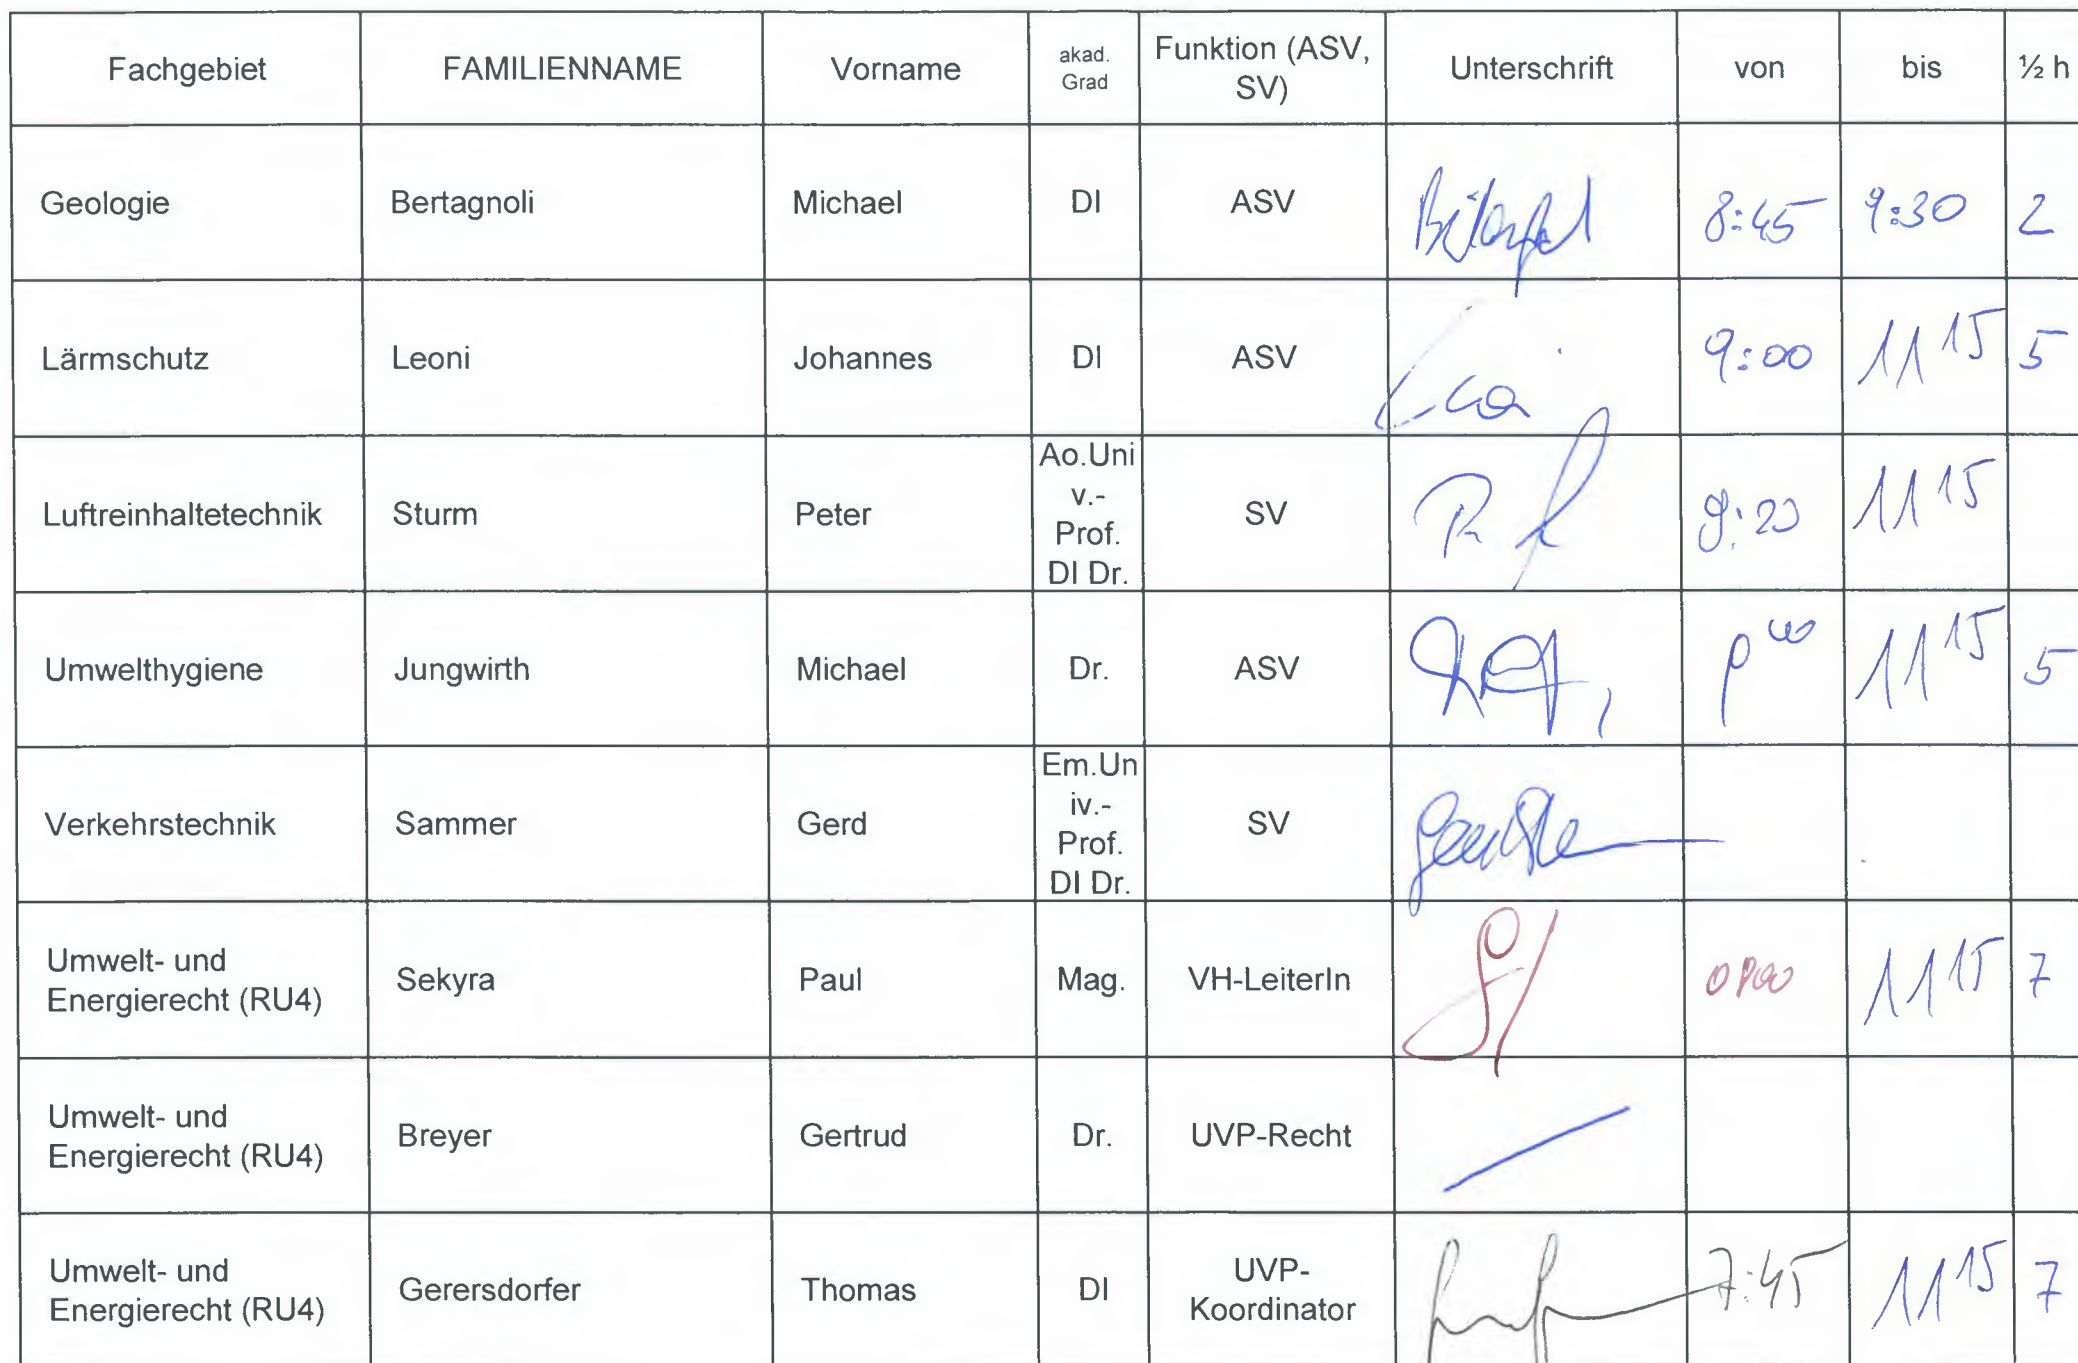 Fachgebiet FAMILIENNAME Vorname akad. Grad Funktion (ASV, SV) Unterschrift von bis ½ h
Geologie Bertagnoli Michael DI ASV 8:45 9:30 2
Lärmschutz Leoni Johannes DI ASV 9:00 11 15 5
Luftreinhaltetechnik Sturm Peter Ao.Uni v.- Prof. DI Dr. SV 11 15
Umwelthygiene Jungwirth Michael Dr. ASV 11 15 5
Verkehrstechnik Sammer Gerd Em.Un iv.- Prof. DI Dr. SV
Umwelt- und
Energierecht (RU4) Sekyra Paul Mag. VH-LeiterIn 11 15 7
Umwelt- und
Energierecht (RU4) Breyer Gertrud Dr. UVP-Recht
Umwelt- und
Energierecht (RU4) Gerersdorfer Thomas DI UVP- Koordinator 7:45 11 15 7